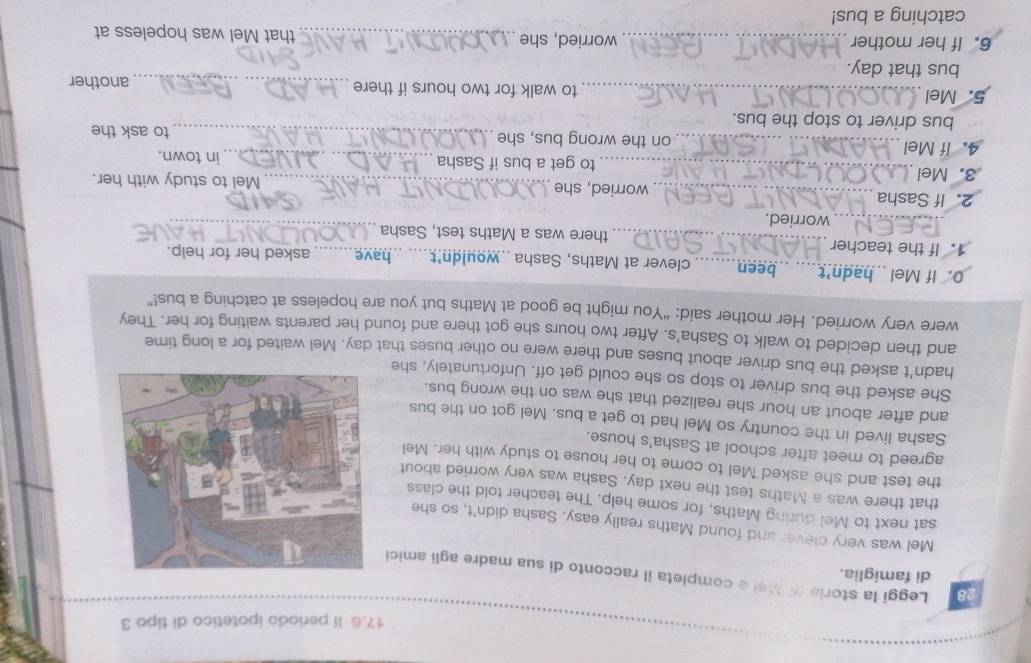 17.6 Il periodo ipotetico di tipo 3
28 Leggi la storia di Mel e completa il racconto di sua madre agli amici
di famiglia.
Mel was very clever and found Maths really easy. Sasha didn't, so she
sat next to Mel during Maths, for some help. The teacher told the class
that there was a Maths test the next day. Sasha was very worried about
the test and she asked Mel to come to her house to study with her. Mel
agreed to meet after school at Sasha's house.
Sasha lived in the country so Mel had to get a bus. Mel got on the bus
and after about an hour she realized that she was on the wrong bus.
She asked the bus driver to stop so she could get off. Unfortunately, she
hadn't asked the bus driver about buses and there were no other buses that day. Mel waited for a long time
and then decided to walk to Sasha's. After two hours she got there and found her parents waiting for her. They
were very worried. Her mother said: "You might be good at Maths but you are hopeless at catching a bus!"
0. If Mel hadn't been clever at Maths, Sasha wouldn't have asked her for help.
1. If the teacher HADN'T SAID there was a Maths test, Sasha WOULDN'T HAVE
BEEN worried.
2. If Sasha HADN'T BEEN worried, she WOULDN'T HAVE SAID Mel to study with her.
3. Mel WOULDN'T HAVE to get a bus if Sasha HAD LIVED in town.
4. If Mel HADN'T SAT on the wrong bus, she WOULDN'T HAVE to ask the
bus driver to stop the bus.
5. Mel WOULDN'T HAVE to walk for two hours if there HAD BEEN another
bus that day.
6. If her mother HADN'T BEEN worried, she WOULDN'T HAVE SAID that Mel was hopeless at
catching a bus!